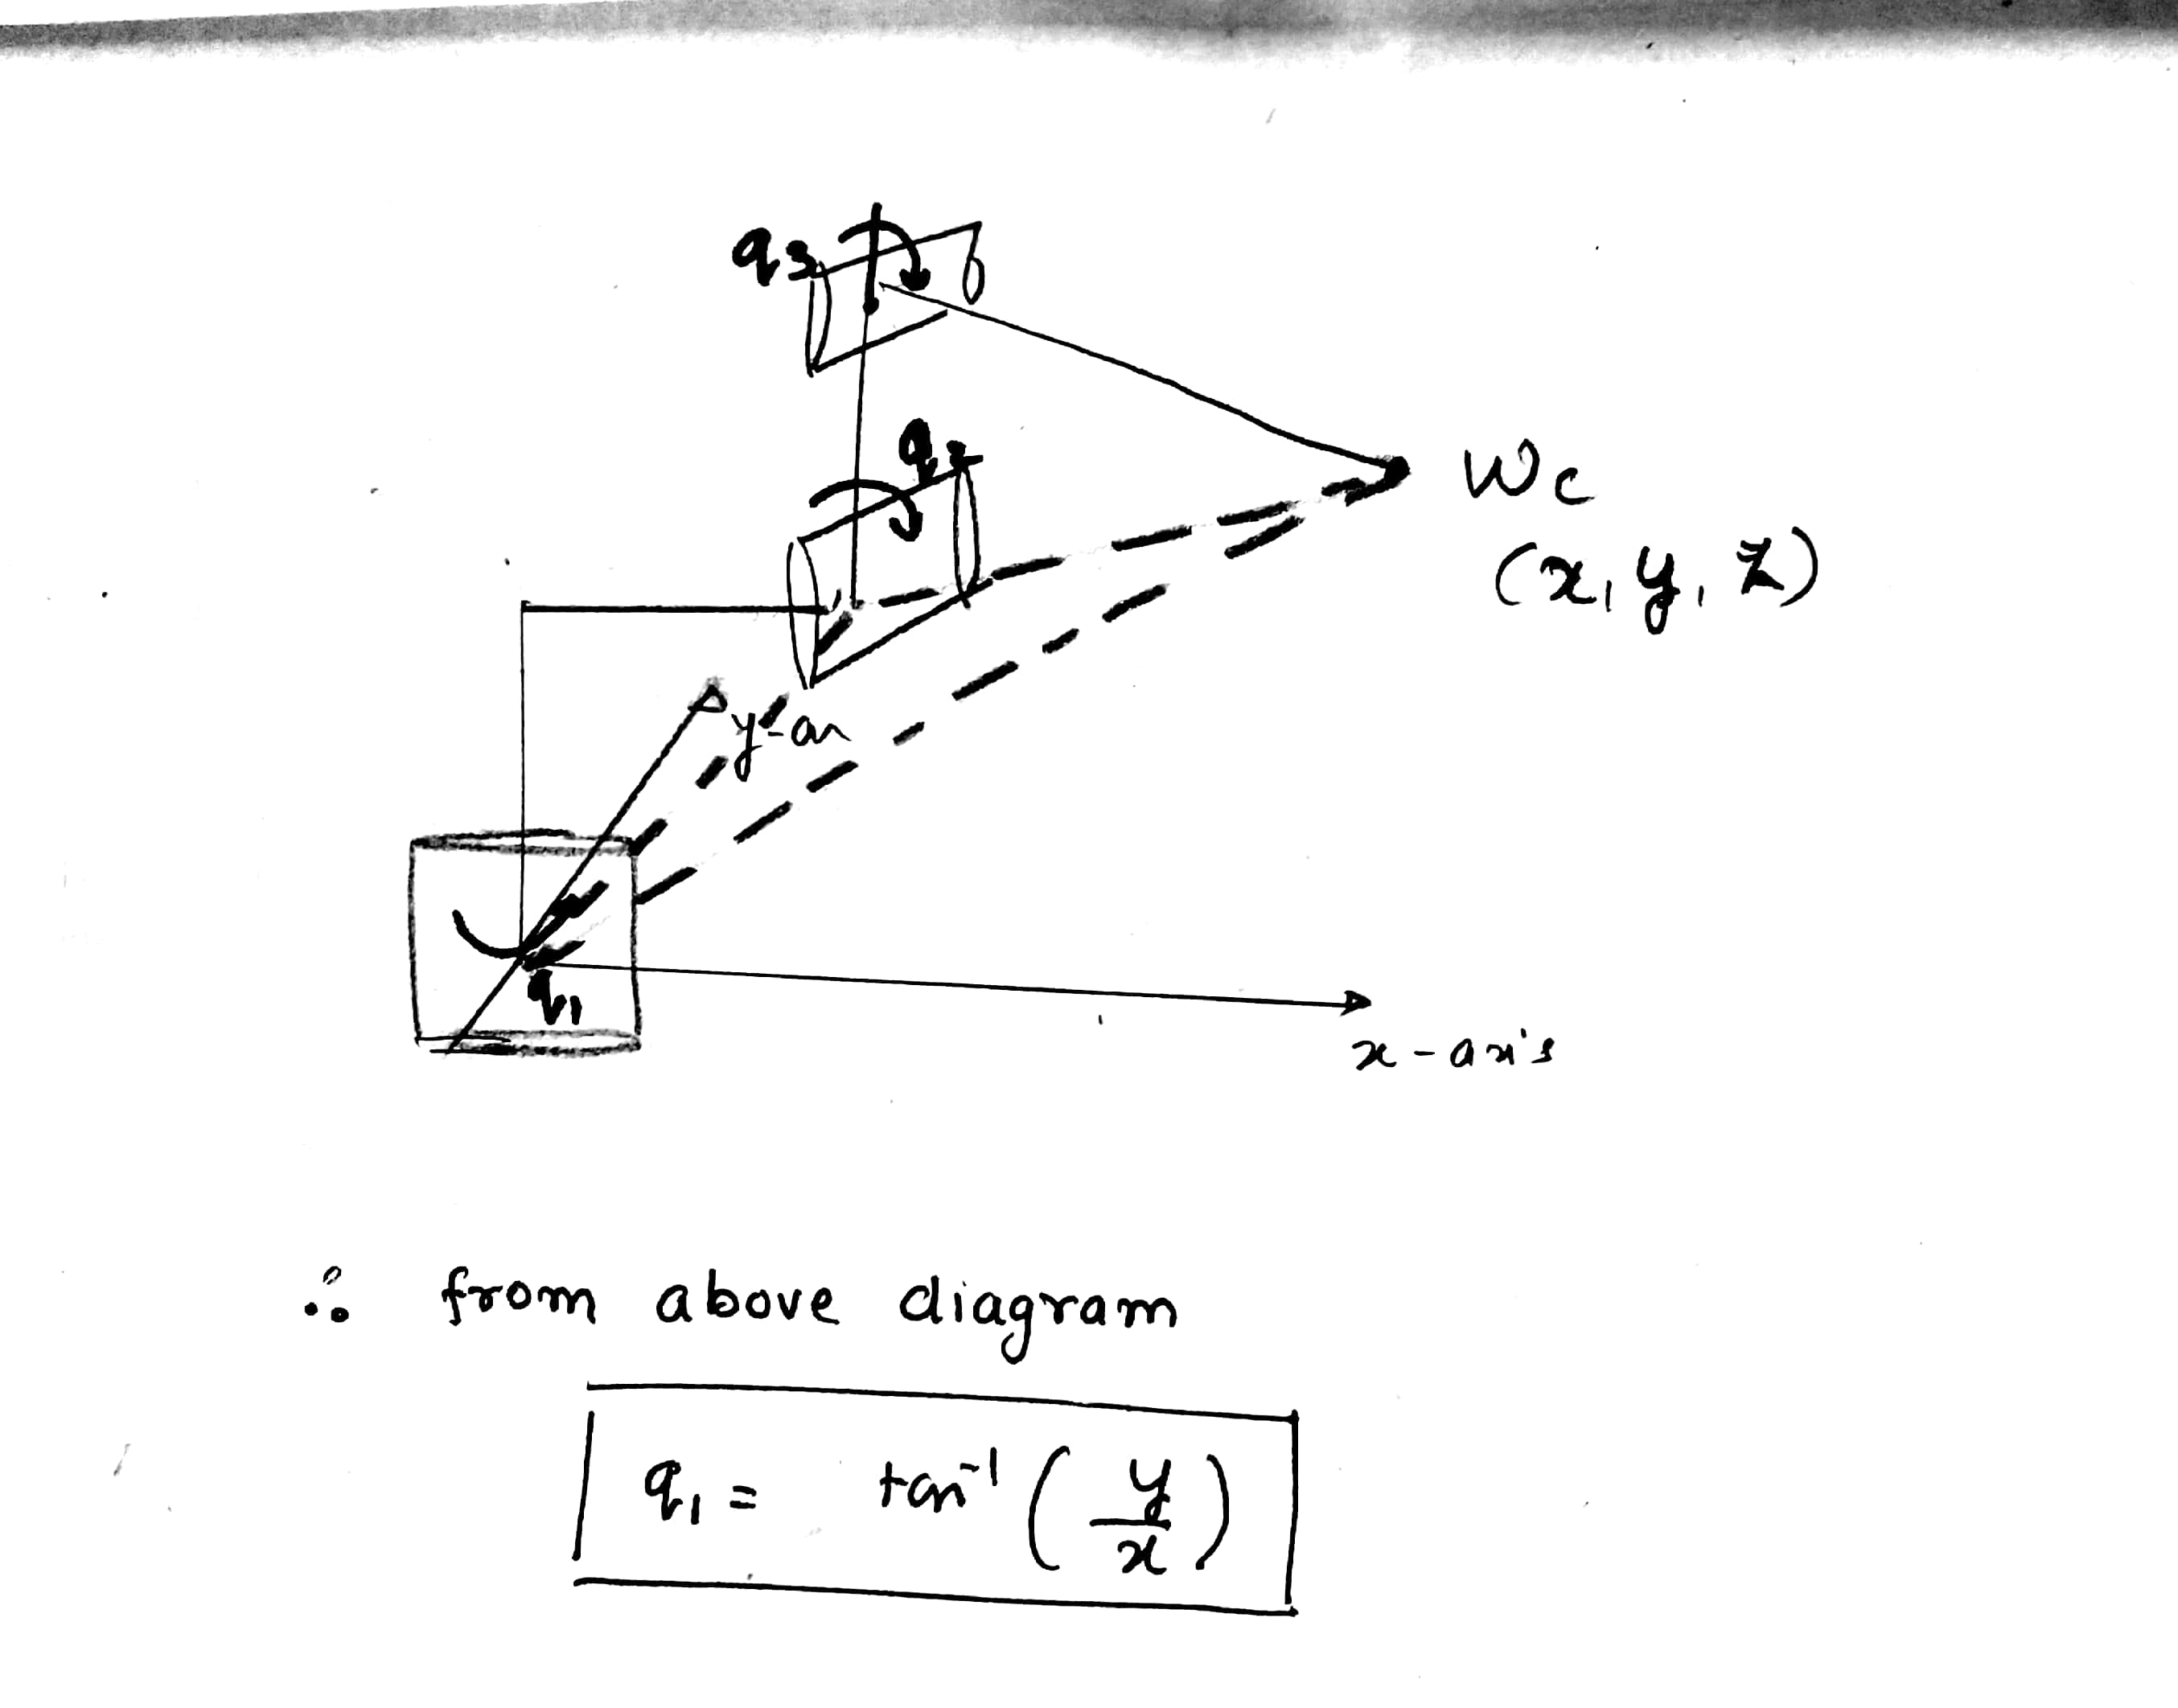 q3
q2
Wc
(x, y, z)
y-ax
q1
x-axis
∴ from above diagram
q1 = tan⁻¹ (y/x)